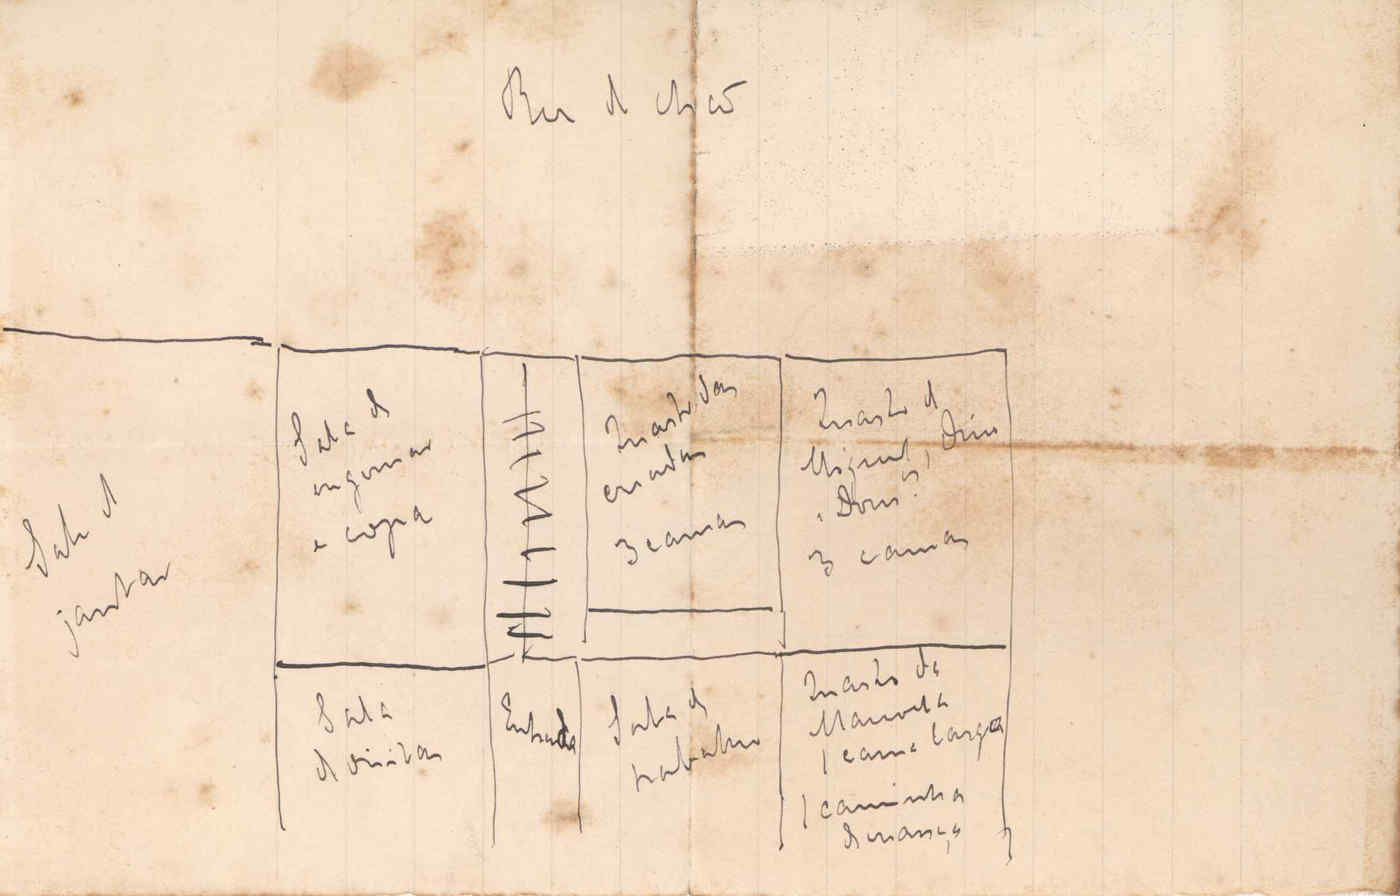 Rez de chão
Sala de
jantar
Sala de
engomar
e copa
Quarto das
criadas
3 camas
Quarto de
Miguel,
3 camas
Sala
de visitas
Entrada
Sala de
trabalho
Quarto da
Manoela
1 cama larga
1 caminha
de criança